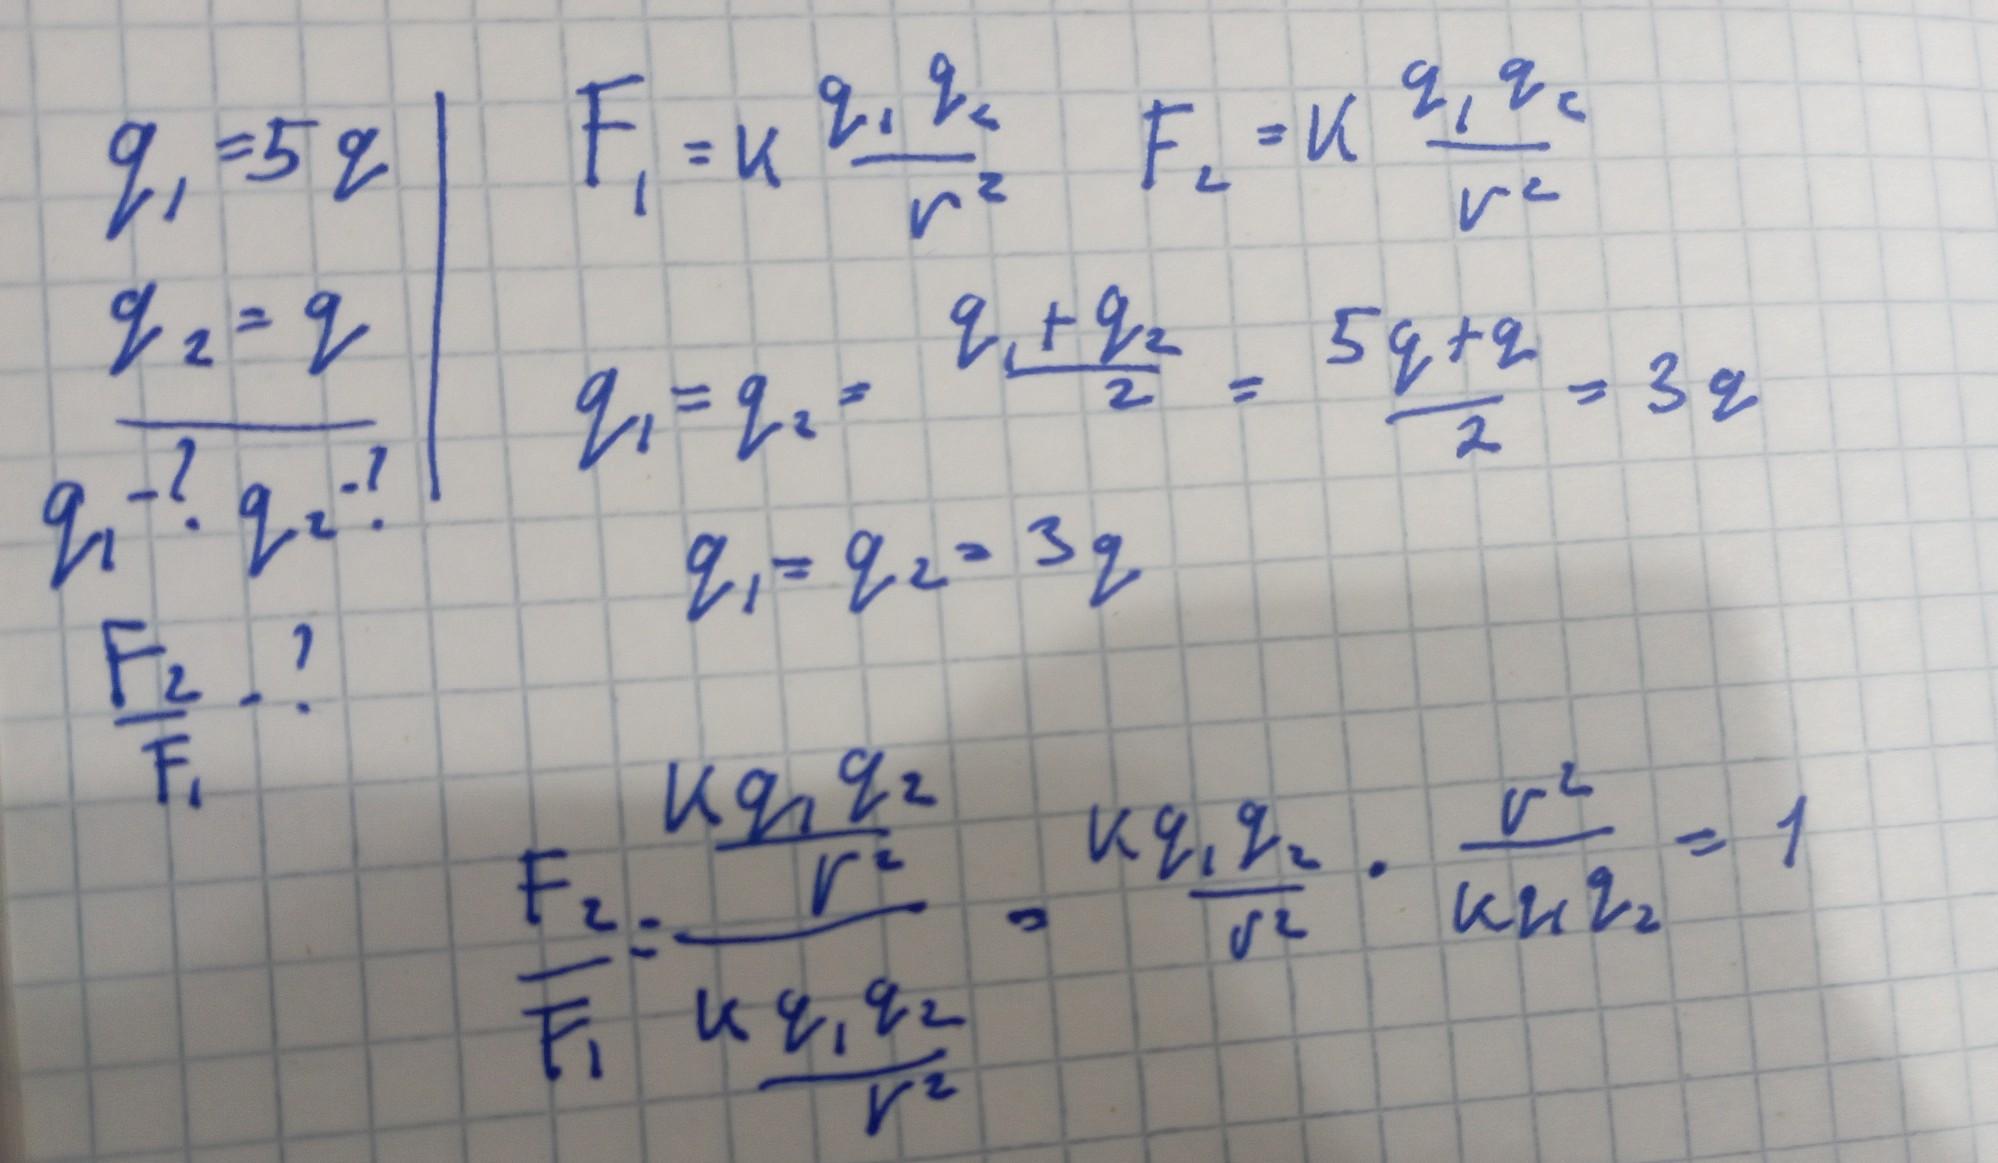 q₁ = 5q
q₂ = q
q₁ - ? q₂ - ?
F₂/F₁ - ?
F₁ = K q₁ q₂ / r² F₂ = K q₁ q₂ / r²
q₁ = q₂ = (q₁ + q₂)/2 = (5q + q)/2 = 3q
q₁ = q₂ = 3q
F₂/F₁ = (K q₁ q₂ / r²) / (K q₁ q₂ / r²) = K q₁ q₂ / r² · r² / (K q₁ q₂) = 1